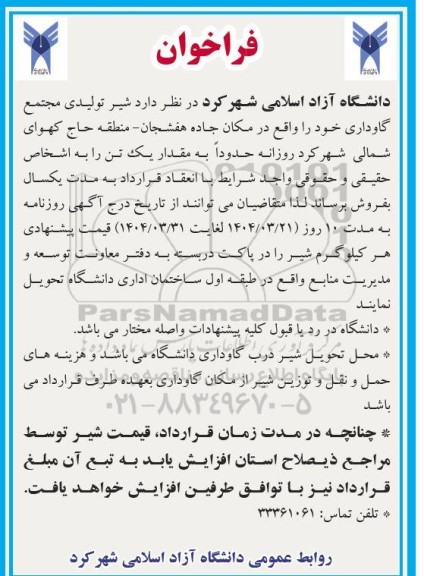 فراخوان
دانشگاه آزاد اسلامی شهرکرد در نظر دارد شیر تولیدی مجتمع
گاوداری خود را واقع در مکان جاده هفشجان- منطقه حاج کهوای
شمالی شهرکرد روزانه حدوداً به مقدار یک تن را به اشخاص
حقیقی و حقوقی واجد شرایط با انعقاد قرارداد به مدت یکسال
بفروش برساند لذا متقاضیان می توانند از تاریخ درج آگهی روزنامه
به مدت ۱۰ روز (۱۴۰۴/۰۳/۲۱ لغایت ۱۴۰۴/۰۳/۳۱) قیمت پیشنهادی
هر کیلوگرم شیر را در پاکت دربسته به دفتر معاونت توسعه و
مدیریت منابع واقع در طبقه اول ساختمان اداری دانشگاه تحویل
نمایند
ParsNamadData
* دانشگاه در رد یا قبول کلیه پیشنهادات واصله مختار می باشد.
* محل تحویل شیر درب گاوداری دانشگاه می باشد و هزینه های
حمل و نقل و توزین شیر از مکان گاوداری بعهده طرف قرارداد می
باشد
۰۲۱-۸۸۳۴۹۶۷۰-۵
* چنانچه در مدت زمان قرارداد، قیمت شیر توسط
مراجع ذیصلاح استان افزایش یابد به تبع آن مبلغ
قرارداد نیز با توافق طرفین افزایش خواهد یافت.
* تلفن تماس: ۳۳۳۶۱۰۶۱
روابط عمومی دانشگاه آزاد اسلامی شهرکرد